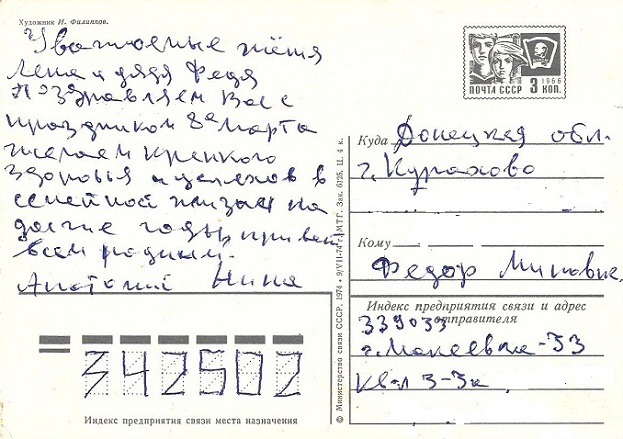 Художник И. Филиппов.
Уважаемые тётя
Лена и дядя Федя
Поздравляем Вас с
праздником 8е Марта
желаем крепкого
здоровья и успехов в
семейной жизни на
долгие годы, привет
всем родным.
Анатолий Нина
ПОЧТА СССР 3 КОП.
1966
Куда Донецкая обл.
г. Курахово
Кому
Федор
Индекс предприятия связи и адрес
отправителя
339033
г. Макеевка-33
кв-л 3-3а
342502
Индекс предприятия связи места назначения
© Министерство связи СССР, 1974 • 9/VII-74 г. МТГ. Зак. 6125. Ц. 4 к.